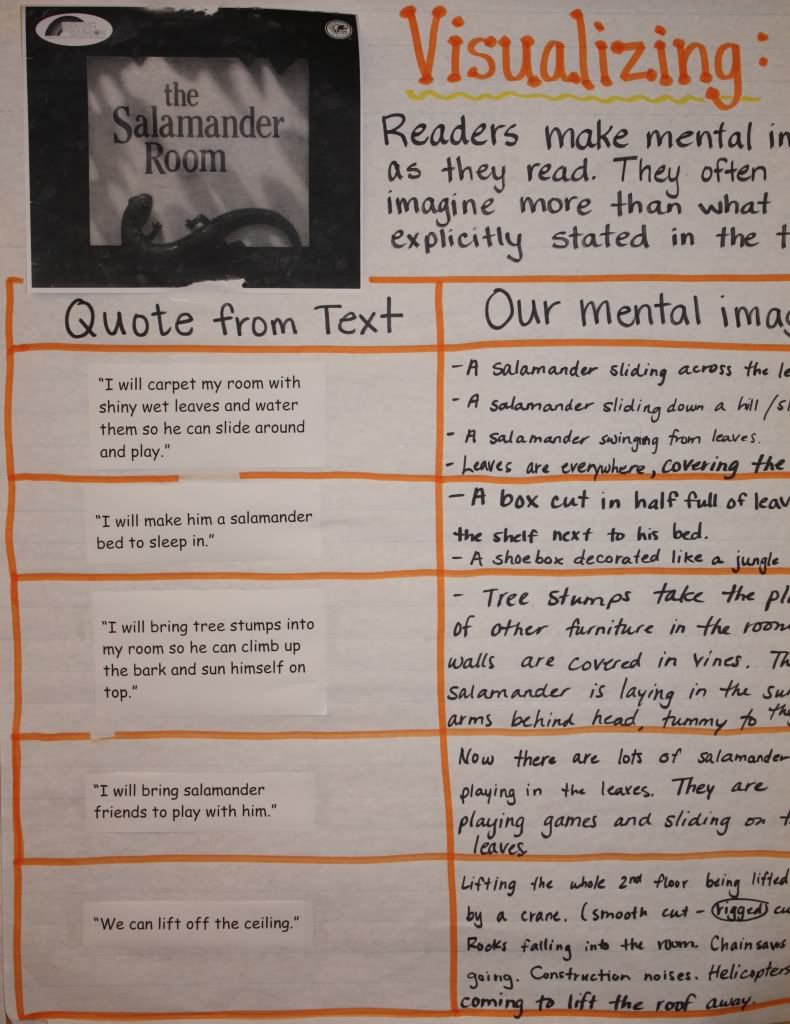 the
Salamander
Room
Visualizing:
Readers make mental im
as they read. They often
imagine more than what
explicitly stated in the t
Quote from Text
Our mental imag
"I will carpet my room with
shiny wet leaves and water
them so he can slide around
and play."
- A salamander sliding across the le
- A salamander sliding down a hill/sl
- A salamander swinging from leaves.
- Leaves are everywhere, covering the
"I will make him a salamander
bed to sleep in."
- A box cut in half full of leav
the shelf next to his bed.
- A shoebox decorated like a jungle
"I will bring tree stumps into
my room so he can climb up
the bark and sun himself on
top."
- Tree stumps take the pl
of other furniture in the room
walls are covered in vines. Th
salamander is laying in the su
arms behind head, tummy to the
"I will bring salamander
friends to play with him."
Now there are lots of salamander
playing in the leaves. They are
playing games and sliding on t
leaves
"We can lift off the ceiling."
Lifting the whole 2nd floor being lifted
by a crane. (smooth cut - rigged cu
Rocks falling into the room. Chainsaws
going. Construction noises. Helicopters
coming to lift the roof away.